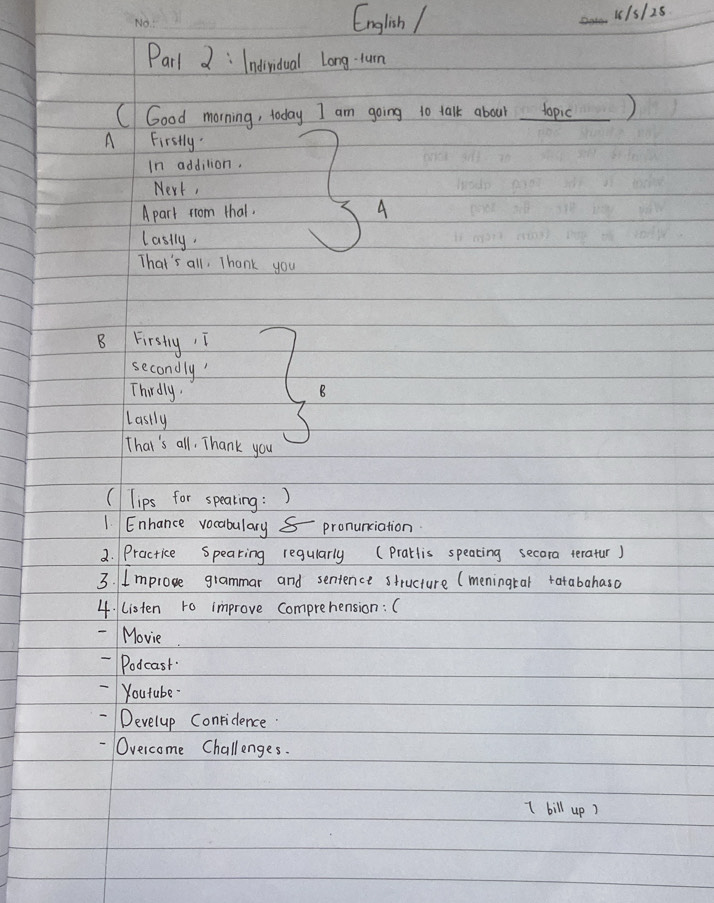 No:
English /
Date: 16/5/25
Part 2 : Individual Long-turn
( Good morning, today I am going to talk about topic )
A Firstly.
In addition.
Next,
Apart from that. A
Lastly.
That's all. Thank you
B Firstly, I
secondly,
Thirdly. B
Lastly
That's all. Thank you
( Tips for speaking: )
1. Enhance vocabulary & pronunciation.
2. Practice Speaking regularly (Praktis speaking secara teratur)
3. Improve grammar and sentence structure (meningkat tatabahasa
4. Listen to improve comprehension: (
- Movie
- Podcast.
- Youtube-
- Develup Confidence.
- Overcome Challenges.
( bill up )